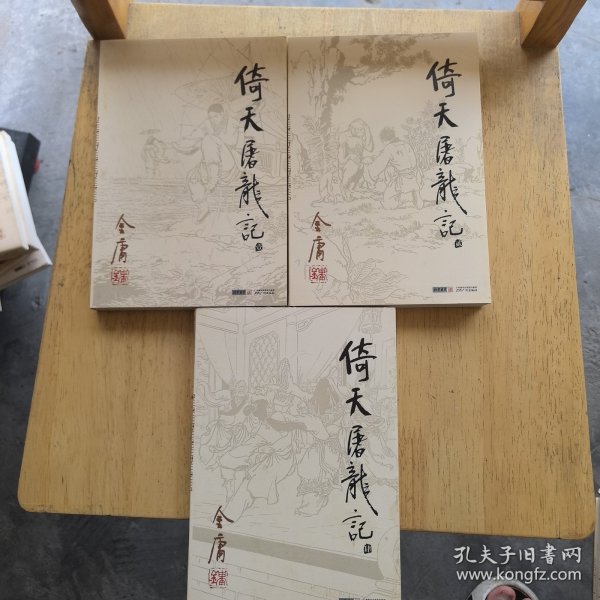 倚天屠龍記
壹
金庸
倚天屠龍記
贰
金庸
倚天屠龍記
金庸
孔夫子旧书网
www.kongfz.com